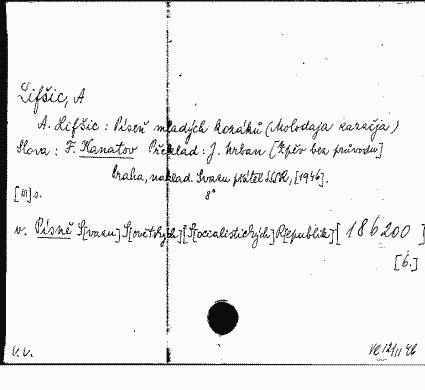 Lifšic, A
A. Lifšic : Píseň mladých kozáků (Molodaja kazačja)
Slova : F. Kanatov Překlad : J. Urban [Zpěv bez průvodu]
Praha, naklad. Svazu přátel SSSR, [1946].
[III] s. 8°
v. Písně S[vazu] S[ovětských] [S[ocialistických] R[epublik] [ 186200 ]
[6.]
V.V. 12/11 46